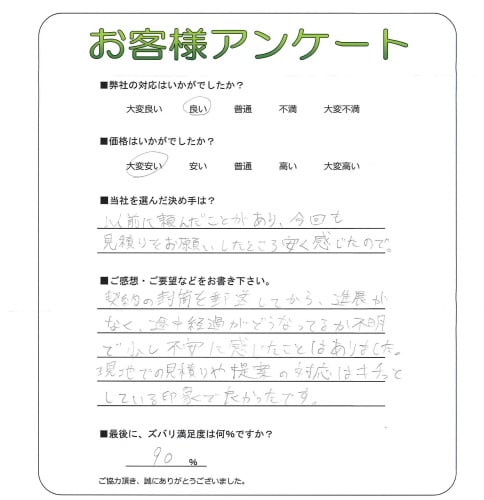 お客様アンケート
■弊社の対応はいかがでしたか？
大変良い 良い 普通 不満 大変不満
■価格はいかがでしたか？
大変安い 安い 普通 高い 大変高い
■当社を選んだ決め手は？
以前に頼んだことがあり、今回も
見積りをお願いしたところ安く感じたので。
■ご感想・ご要望などをお書き下さい。
契約の封筒を郵送してから、進展が
なく、途中経過がどうなってるか不明
で少し不安に感じたことはありました。
現地での見積りや提案の対応はキチっと
している印象で良かったです。
■最後に、ズバリ満足度は何%ですか？
90 %
ご協力頂き、誠にありがとうございました。